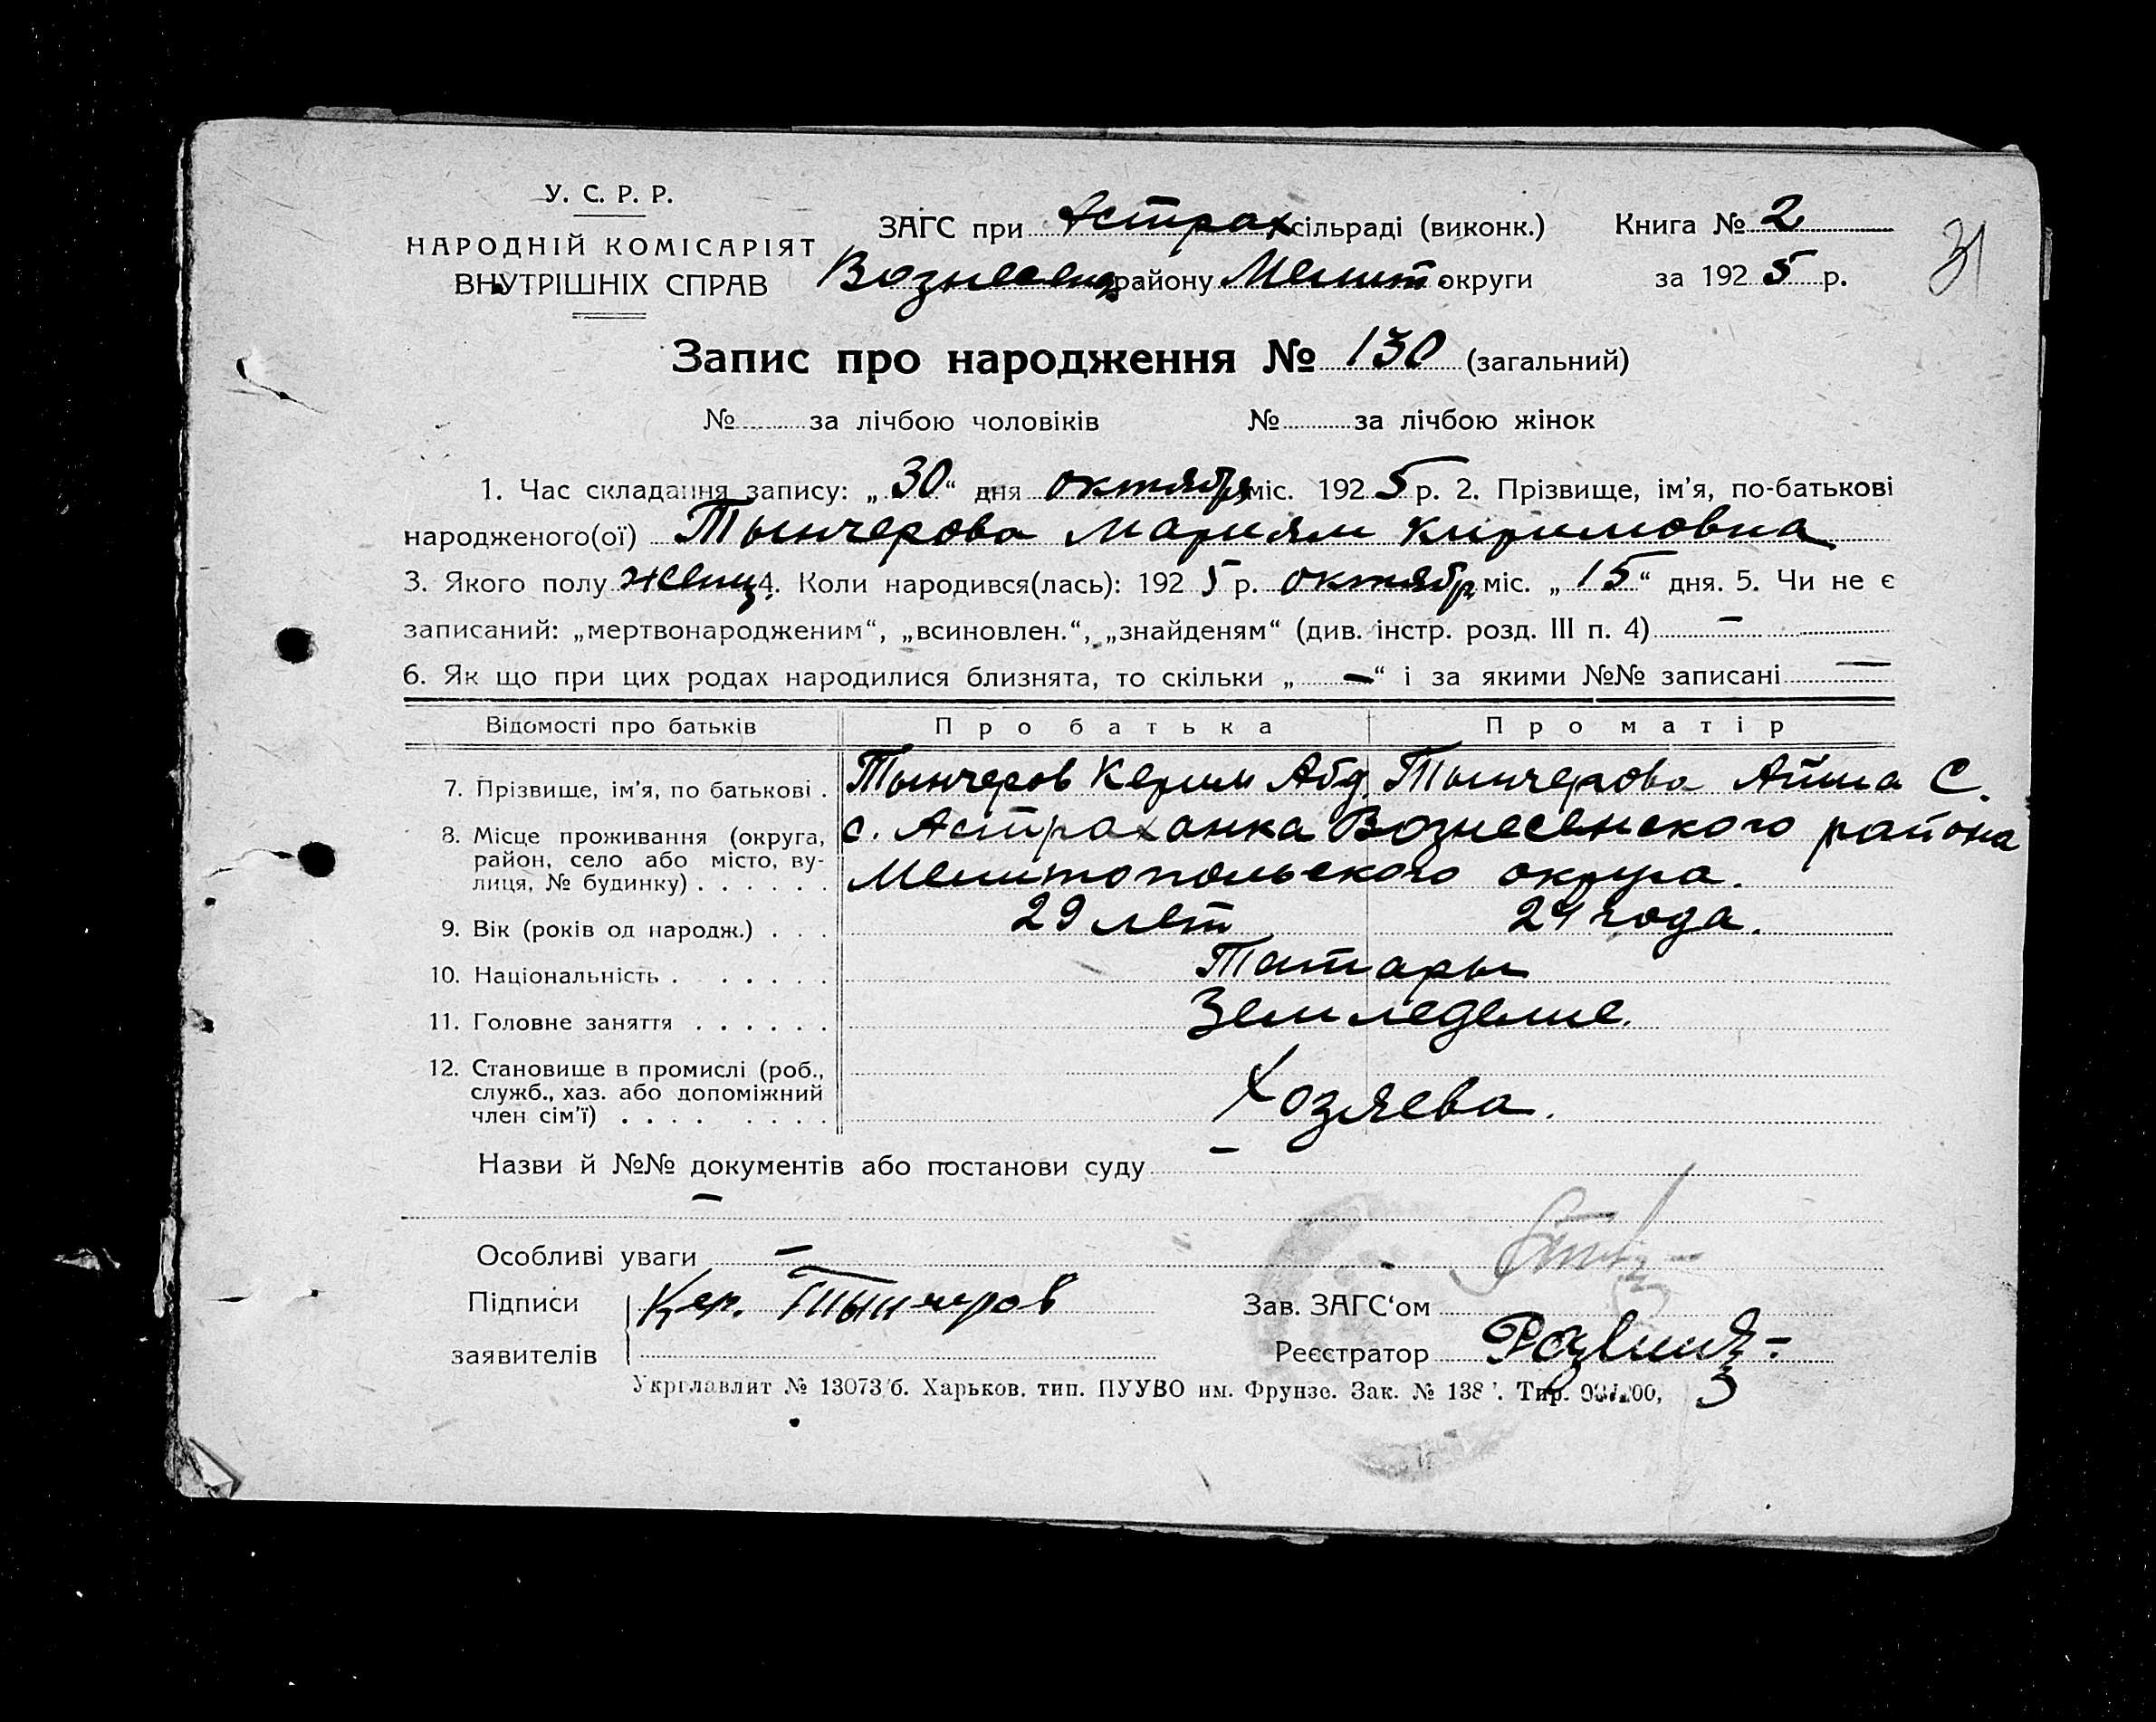 У. С. Р. Р.
НАРОДНІЙ КОМІСАРІЯТ
ВНУТРІШНІХ СПРАВ
ЗАГС при Астрах сільраді (виконк.)
Вознесенр району Мелит. округи
Книга № 2
за 1925 р.
31
Запис про народження № 130 (загальний)
№ за лічбою чоловіків № за лічбою жінок
1. Час складання запису: „30“ дня октября міс. 1925 р. 2. Прізвище, ім’я, по-батькові
народженого(ої) Тынчерова Мариям Киримовна
3. Якого полу женщ. 4. Коли народився(лась): 1925 р. октябр міс. „15“ дня. 5. Чи не є
записаний: „мертвонародженим“, „всиновлен.“, „знайденям“ (див. інстр. розд. III п. 4) —
6. Як що при цих родах народилися близнята, то скільки „—“ і за якими №№ записані —
Відомості про батьків Про батька Про матір
7. Прізвище, ім’я, по батькові . Тынчеров Керим Абд. Тынчерова Айша С.
8. Місце проживання (округа, с. Астраханка Вознесенского района
район, село або місто, ву-
лиця, № будинку) . . . . . . Мелитопольского округа.
9. Вік (років од народж.) . . . 29 лет 24 года.
10. Національність . . . . . . . Татары
11. Головне заняття . . . . . . Земледелие.
12. Становище в промислі (роб.,
служб., хаз. або допоміжний
член сім’ї) . . . . . . . . Хозяева.
Назви й №№ документів або постанови суду —
—
Особливі уваги —
Підписи Кер. Тынчеров
заявителів
Зав. ЗАГС‘ом
Реєстратор
Укрглавлит № 13073/б. Харьков, тип. ПУУВО им. Фрунзе. Зак. № 138 Тир.